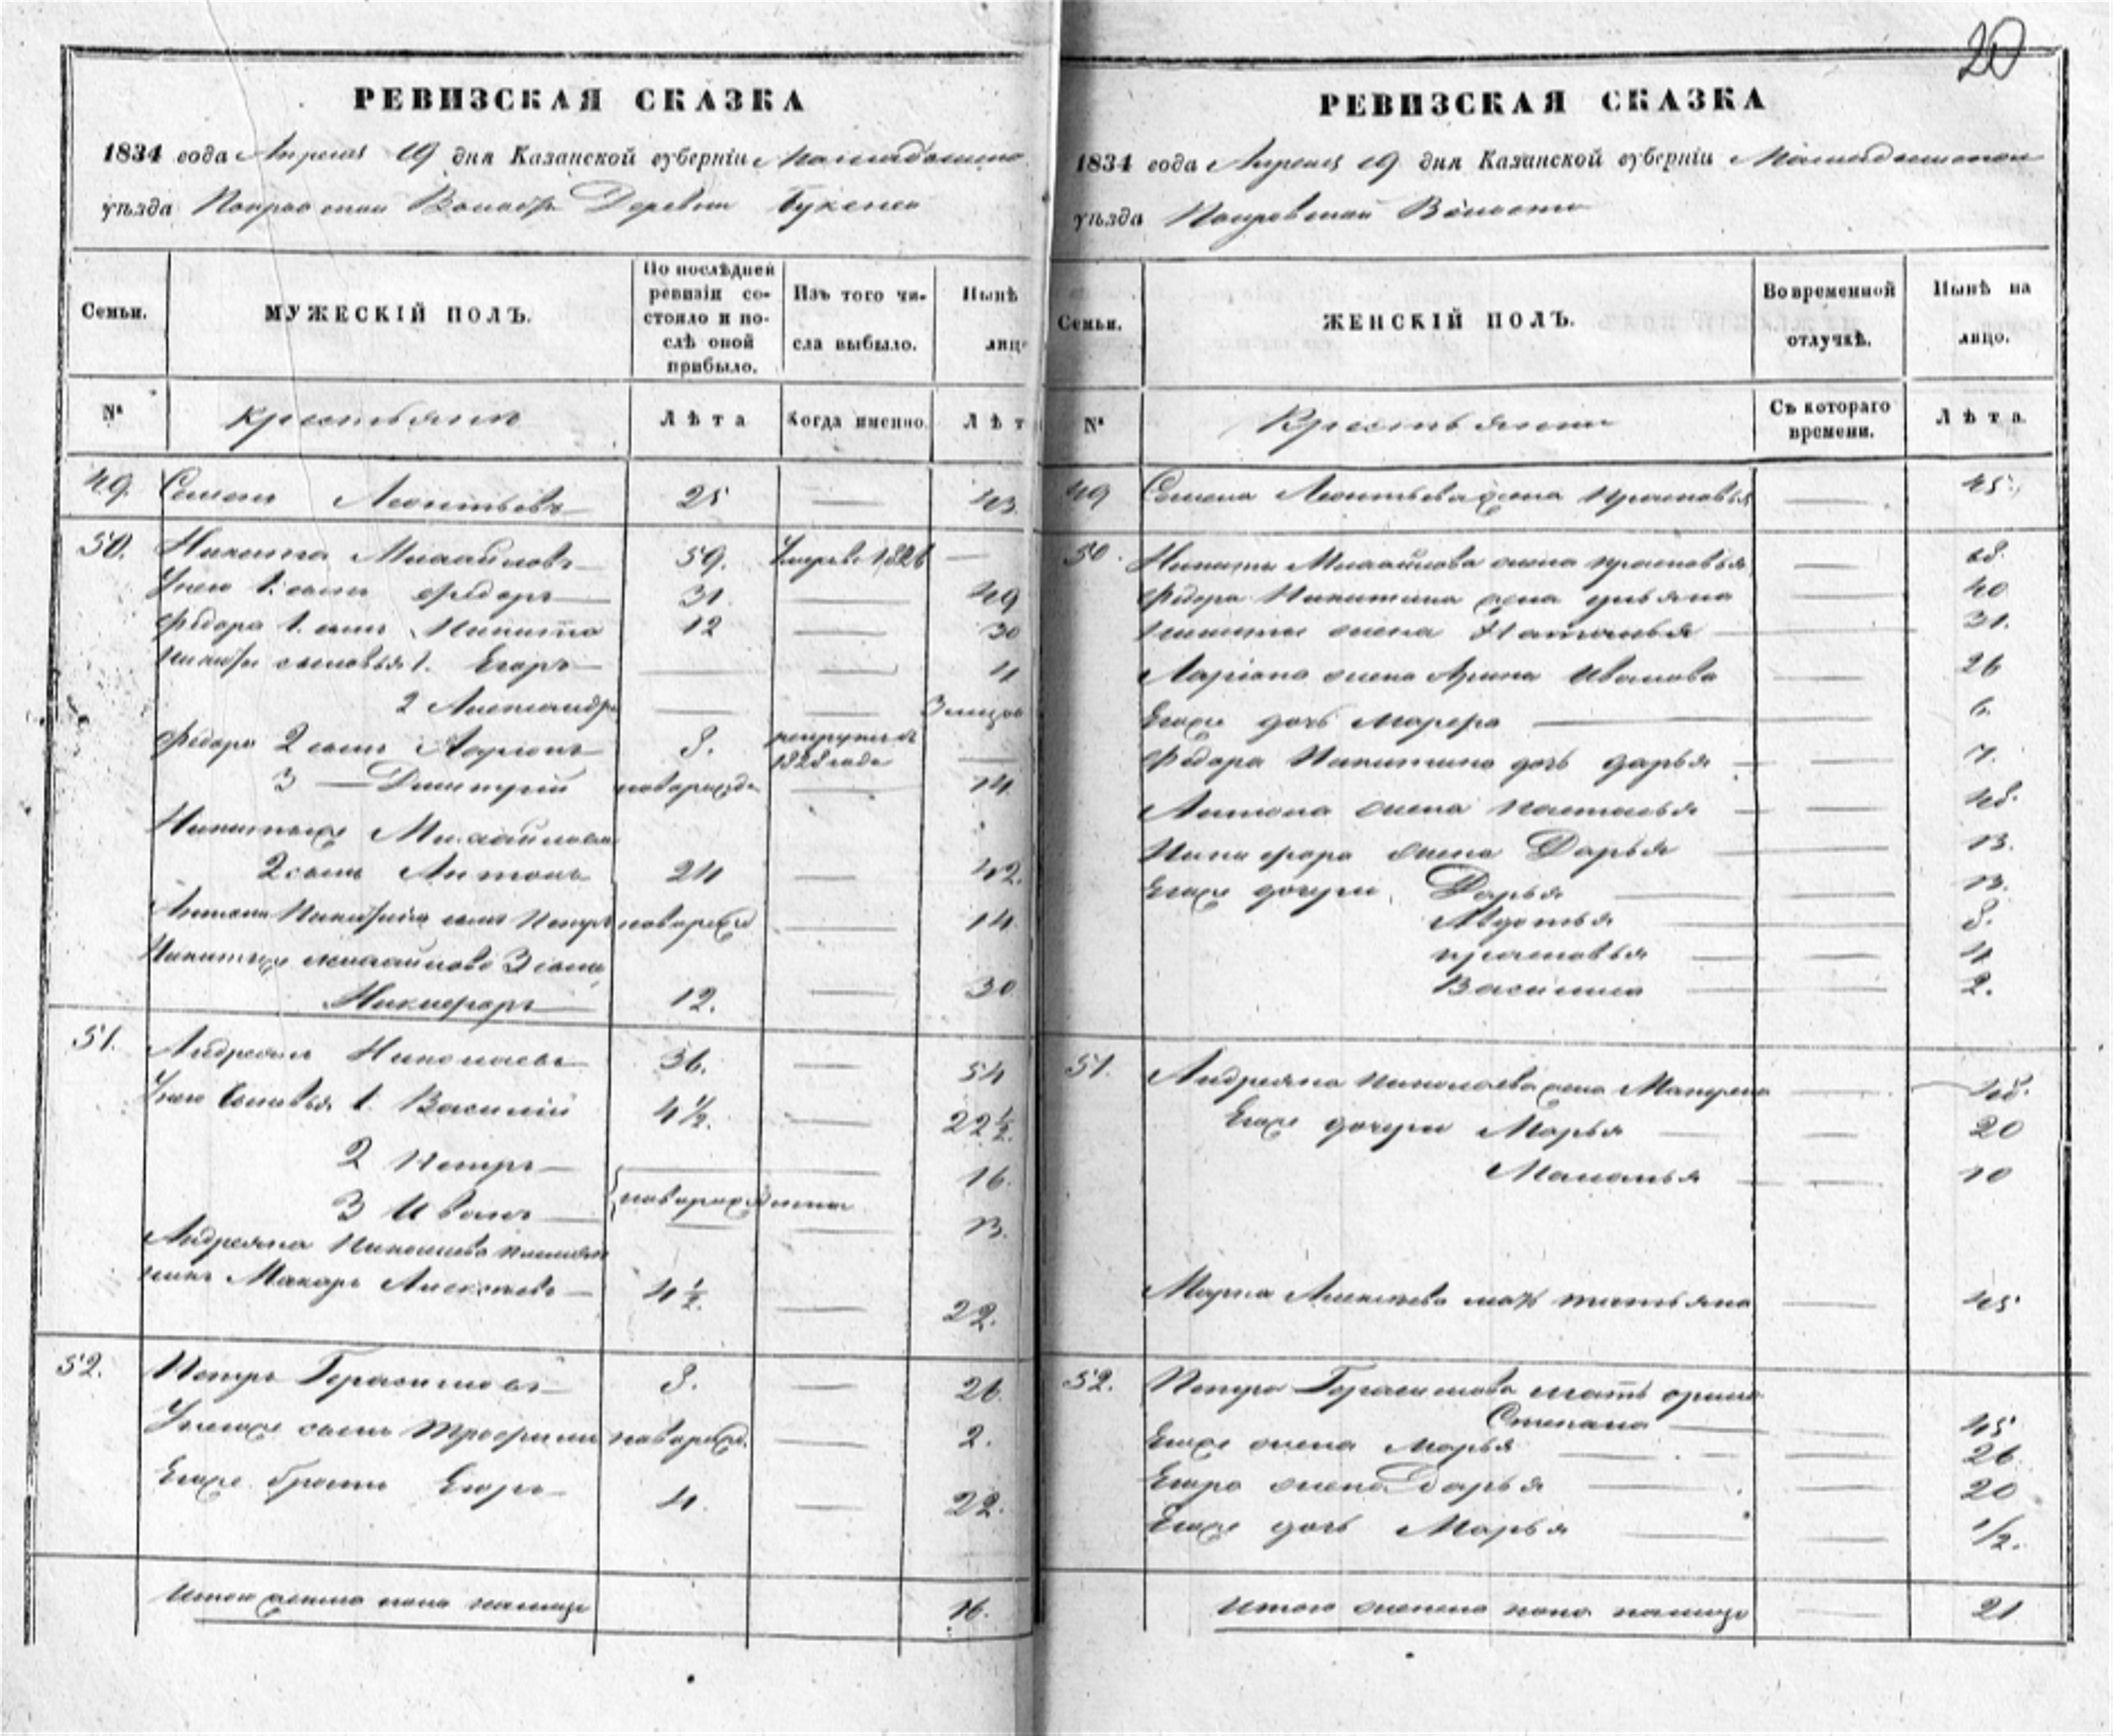 20
РЕВИЗСКАЯ СКАЗКА
1834 года Апреля 19 дня Казанской губерніи
уѣзда Волости Деревни
Семьи.
МУЖЕСКІЙ ПОЛЪ.
По послѣдней ревизіи состояло и послѣ оной прибыло.
Изъ того числа выбыло.
Нынѣ лиц
№
крестьяне
Лѣта
Когда именно.
Лѣт
49. Семенъ Леонтьевъ 25 — 43
50. Никита Михайловъ 59. Умеръ 1826 —
У него 1. сынъ Федоръ 31 — 49
Федора 1. сынъ Никита 12 — 30
Никиты сыновья 1. Егоръ — — 4
2 Александръ — — 3
Федора 2 сынъ Ларіонъ 8. рекрутъ въ 1828 годе —
3 — Дмитрий новорожде — 14
Никиты же Михайлова
2 сынъ Антонъ 24 — 42.
Антона Никитина сынъ Петръ новорожд — 14
Никиты же Михайлова 3 сынъ
Никифоръ 12. — 30
51. Андреянъ Николаевъ 36. — 54
У него сыновья 1. Василий 4½. — 22½.
2 Петръ — — 16.
3 Иванъ новорожденны — 13.
Андреяна Николаева племян
никъ Макаръ Алексеевъ 4½. — 22.
52. Петръ Герасимовъ 8. — 26.
У него же сынъ Трофимъ новорожд. — 2.
Его же братъ Егоръ 4. — 22.
Итого мужеска пола налицо 16.
РЕВИЗСКАЯ СКАЗКА
1834 года Апреля 19 дня Казанской губерніи
уѣзда Волости
Семьи.
ЖЕНСКІЙ ПОЛЪ.
Во временной отлучкѣ.
Нынѣ на лицо.
№
Крестьяне
Съ котораго времени.
Лѣта.
49 Семена Леонтьева жена Прасковья — 45.
50. Никиты Михайлова жена Прасковья — 68.
Федора Никитина жена Ульяна — 40
Никиты жена Наталья — 31.
Ларіона жена Арина Иванова — 26
Его же дочь — 6.
Федора Никитина дочь Дарья — 7.
Антона жена Наталья — 48.
Никифора жена Дарья — 13.
Его же дочери Дарья — 13.
Авдотья — 8.
Прасковья — 4
Василиса — 2.
51. Андреяна Николаева жена — 48.
Его же дочери Марья — 20
Маланья — 10
Алексеева мать Татьяна — 45
52. Петра Герасимова мать
Степана — 45
Его же жена Марья — 26
Егора жена Дарья — 20
Его же дочь Марья — 1/2.
Итого женска пола налицо — 21